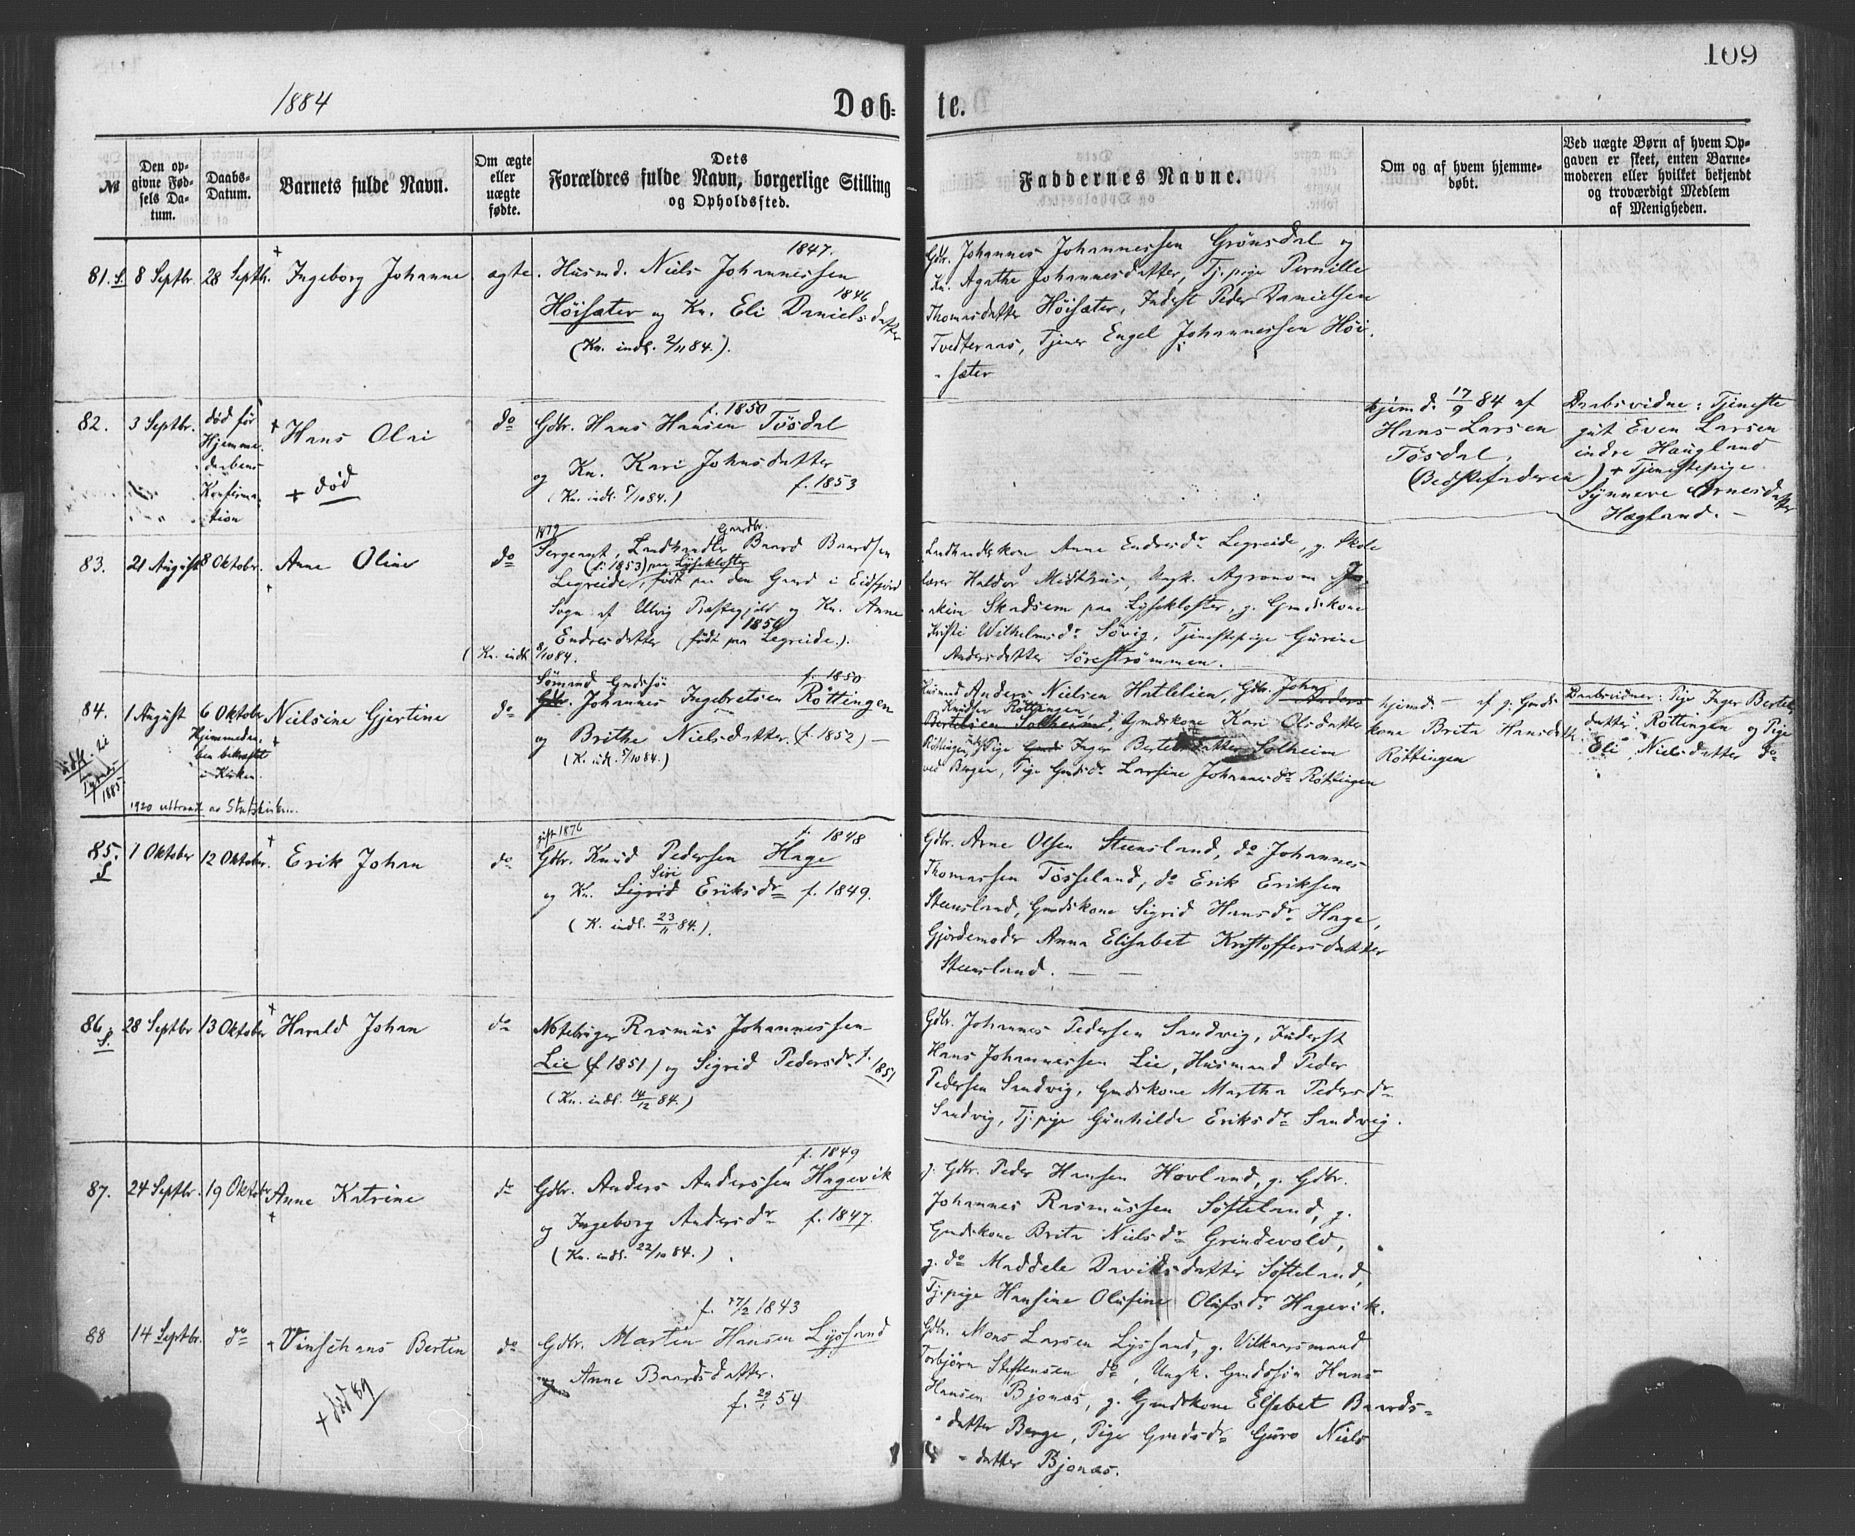 1884
Døb=
te.
109
№
Den op=
givne Fød=
sels Da=
tum.
Daabs=
Datum.
Barnets fulde Navn.
Om ægte
eller
uægte
fødte.
Dets
Forældres fulde Navn, borgerlige Stilling
og Opholdssted.
Faddernes Navne.
Om og af hvem hjemme=
døbt.
Ved uægte Børn af hvem Op=
gaven er skeet, enten Barne=
moderen eller hvilket bekjendt
og troværdigt Medlem
af Menigheden.
81. S. 8 Septbr. 28 Septb. + Ingeborg Johanne ægte.
1847.
Husmd. Niels Johannessen
1846
Høisæter og Kn. Eli Daniels=datter
(Kn. indl. 2/11 84.).
Gbr. Johannes Johannessen Grønsdal og
Kn. Agathe Johannesdatter, Tj.pige Pernille
Thomasdatter Høisæter, Inderst Peder Danielsen
Tvedteraas, Tjener Engel Johannessen Höi=
=sæter
82. 3 Septbr.
død før
Hjemme
daabens
Konfirma=
tion
+ Hans Olai
+ død
do
f. 1850
Gbr. Hans Hansen Tösdal
og Kn. Kari Johnsdatter
f. 1853
(Kn. indl. 5/10 84.)
hjemd. 17/9 84 af
Hans Larsen
Tösdal.
(Bedstefaderen)
Daabsvidne: Tjeneste
gut Even Larsen
indre Haugland
+ Tjenestepige
Synneve Arnesdatter
Hægland. —
83. 21 August 8 Oktober. Anne Oline do
1879
Gaardbr.
Sergeant, Landhandler Baard Baardsen
(f. 1853) paa Lysekloster
Legreide, født paa den Gaard i Eidfjord
Sogn af Ulvig Præstegjeld og Kn. Anne
1854
Endresdatter (født paa Legreide).
(Kn. indl. 8/10 84.
Landhandskone Anne Endresdr. Legreide, g. Skole
lærer Haldor Midthus, Ungk. Agronom Jo=
=akim Skadsem paa Lysekloster, g. Gaardskone
Kristi Wilhelmsdr. Sövig, Tjenestepige Gurine
Andersdatter Sörestrømmen.
84. 1 August 6 Oktober
Hjemmedaa=
ben bekræftet
i Kirken.
Nielsine Gjertine do
1885
1920 udtraadt av Statskirken...
Sømand Gaardssön f. 1850
Gbr. Johannes Ingebretsen Röttingen
og Brithe Nielsdatter. (f. 1852) —
(K. indl. 5/10 84.)
Husmd Anders Nielsen Hatlelien, Gbr. John Anders
Knudsen Röttingen,
Bertelsen Solheim, g. Gaardskone Kari Olsdatter
Röttingen, Pige Inger Bertelsdatter Solheim
ved Bergen, Pige Gaardsdr. Larsine Johannesdr. Röttingen
hjemd. — af g. Gaards=
kone Brita Hansdtr.
Röttingen
Daabsvidner: Pige Inger Bertels
datter Röttingen og Pige
Eli Nielsdatter do
85. S 1 Oktober 12 Oktober. + Erik Johan do
gift 1876
f. 1848
Gbr. Knud Pedersen Hage
Siri
og Kn. Sigrid Eriksdr f. 1849.
(K. indl. 23/11 84.).
Gbr. Arne Olsen Steensland, do Johannes
Thomassen Tösseland, do Erik Eriksen
Steensland, Gaardskone Sigrid Hansdr. Hage,
Gjordemoder Anna Elisabet Kristoffersdatter
Steensland. — —
86. S. 28 Septbr 13 Oktober + Harald Johan do
Notebruger Rasmus Johannessen
Lie (f 1851.) og Sigrid Pedersdr f. 1851
(Kn. indl. 14/12 84.)
Gbr. Johannes Pedersen Sandvig, Inderst
Hans Johannessen Lie, Husmand Peder
Pedersen Sandvig, Gaardskone Martha Pedersdr
Sandvig, Tj.pige Gunhilde Eriksdr Sandvig.
87. 24 Septbr. 19 Oktober Anne Katrine + do
f. 1849
Gbr. Anders Anderssen Hagevik
og Ingeborg Andersdr f. 1847.
(Kn. indl. 22/10 84.)
g. Gbr. Peder Hansen Hovland, g. Gbr.
Johannes Rasmussen Söfteland, g.
Gaardskone Brita Nielsdr Grindevold,
g. do Maddele Davidsdatter Söfteland,
Tj.pige Hansine Olufine Olufsdr Hagevik.
88 14 Septbr. do + Vinsents Bertin do
+ død 89
f. 17/2 1843
Gbr. Martin Hansen Lyssand
og Anne Baardsdatter.
f. 29/1 54
Gbr. Mons Larsen Lyssand, g. Vilkaarsmand
Torbjørn Steffensen do, Ungk. Gaardssön Hans
Hansen Bjonæs, g. Gaardskone Elsebet Baards=
=datter Berge, Pige Gaardsdr Guro Niels
=datter Bjonæs.